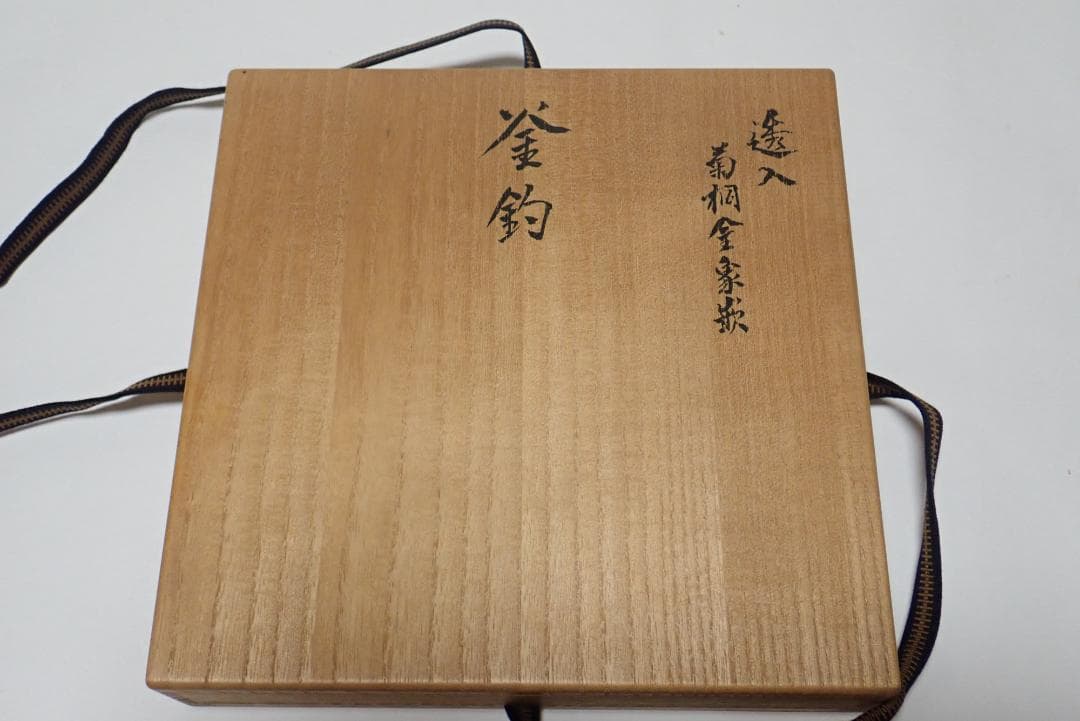 透入
菊桐金象嵌
釜釣